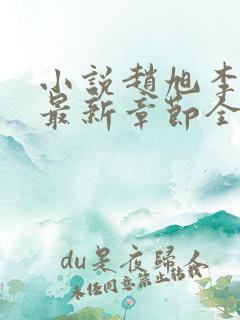 小說趙旭李
最新章節全
du是夜歸人
未经同意禁止转载